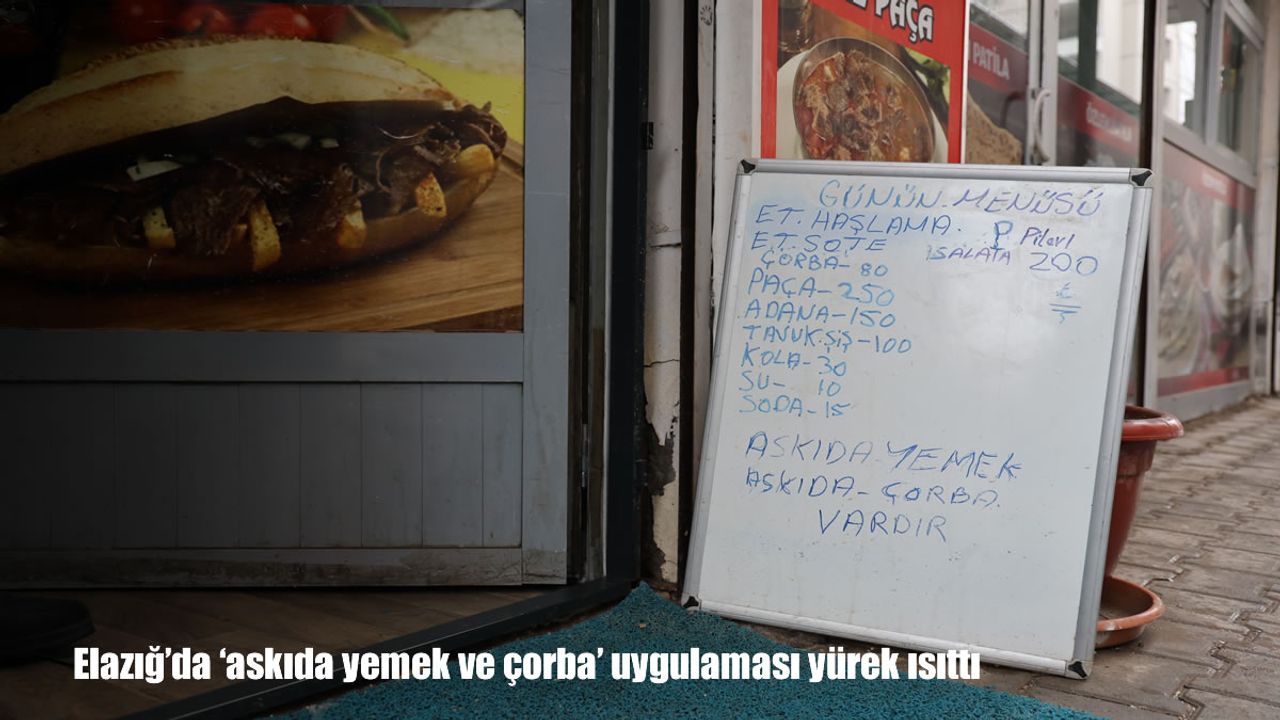 PAÇA
PATİLA
GÜNÜN MENÜSÜ
ET. HAŞLAMA.
ET. SOTE
P Pilavı
SALATA 200
ÇORBA- 80
PAÇA-250
ADANA-150
TAVUK.ŞİŞ-100
KOLA-30
SU- 10
SODA-15
ASKIDA YEMEK
ASKIDA-ÇORBA.
VARDIR
Elazığ’da ‘askıda yemek ve çorba’ uygulaması yürek ısıttı